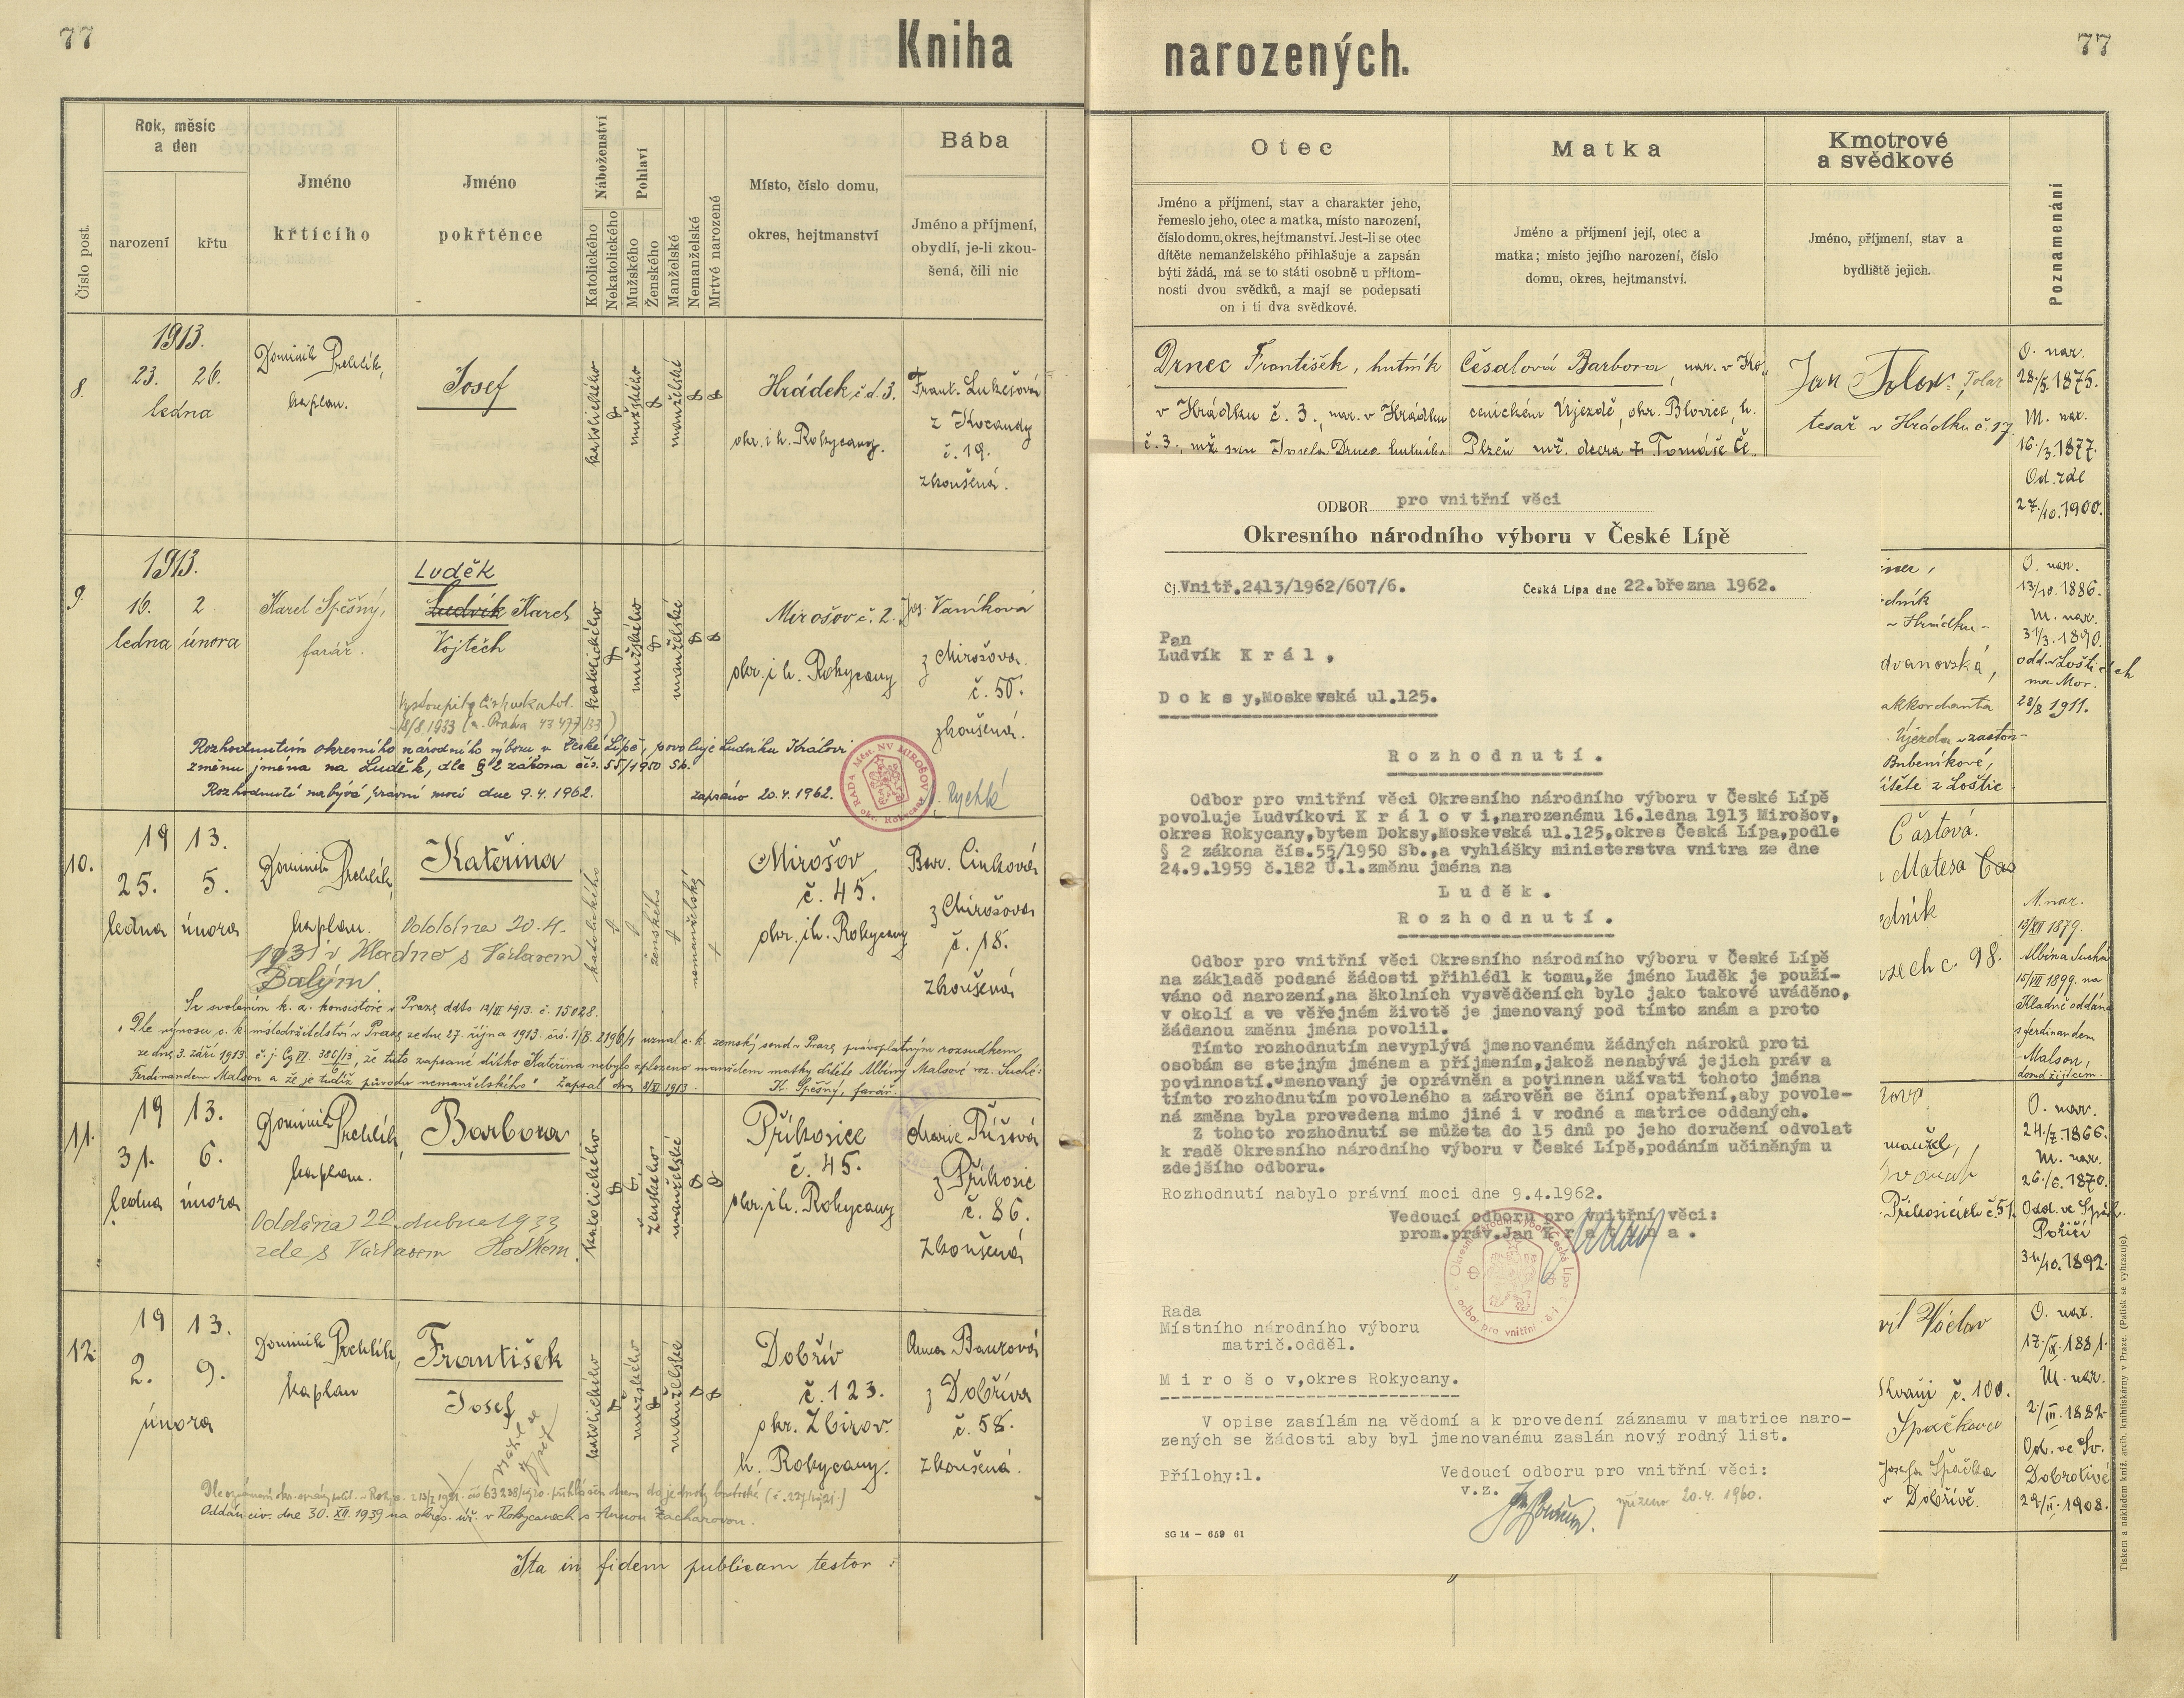 77
Kniha
narozených.
77
Číslo post.
Rok, měsíc
a den
narození
křtu
Jméno
křtícího
Jméno
pokřtěnce
Náboženství
Katolického
Nekatolického
Pohlaví
Mužského
Ženského
Manželské
Nemanželské
Mrtvě narozené
Místo, číslo domu,
okres, hejtmanství
Bába
Jméno a příjmení,
obydlí, je-li zkou-
šená, čili nic
8.
1913.
23. 26.
ledna
Dominik Prchlík,
kaplan.
Josef
katolického
mužského
manželské
Hrádek č.d. 3.
okr. i h. Rokycany.
Frant. Lukešová
z Kocandy
č. 19.
zkoušená.
9.
1913.
16. 2.
ledna února
Karel Spěšný,
farář.
Luděk
Ludvík Karel
Vojtěch
katolického
mužského
manželské
Mirošov č. 2.
okr. i h. Rokycany
Jos. Vaníková
z Mirošova
č. 50.
zkoušená.
Rozhodnutím okresního národního výboru v České Lípě, povoluje Ludvíku Královi
změnu jména na Luděk, dle § 2 zákona čís. 55/1950 Sb.
Rozhodnutí nabývá právní moci dne 9.4.1962. zapsáno 20.4.1962.
RADA MÍST. NV MIROŠOV
okr. Rokycany
10.
19 13.
25. 5.
ledna února
Dominik Prchlík,
kaplan.
Kateřina
katolického
ženského
nemanželské
Mirošov
č. 45.
okr. i h. Rokycany
Bar. Cinková
z Mirošova
č. 18.
zkoušená
Oddána 20.4.
1931 v Kladno s Václavem
Balým
Se svolením k. a. konsistoře v Praze ddto 12/XI 1913. č. 15028.
Dle výnosu c. k. místodržitelství v Praze ze dne 27. října 1913. čís. 1/B. 2196/1 uznal c. k. zemský soud v Praze právoplatným rozsudkem
ze dne 3. září 1913. č. j. Cg VI. 386/13, že tuto zapsané dítko Kateřina nebylo zplozeno manželem matky dítěte Albiny Malsové roz. Suché:
Ferdinandem Malson a že je tudíž původu nemanželského. Zapsal dne 8/XI 1913. K. Spěšný, farář.
11.
19 13.
31. 6.
ledna února
Dominik Prchlík,
kaplan.
Barbora
katolického
ženského
manželské
Příkosice
č. 45.
okr. i h. Rokycany
Marie Říšová
z Příkosic
č. 86.
zkoušená
Oddána 22. dubna 1933
zde s Václavem Hoškem.
12.
19 13.
2. 9.
února
Dominik Prchlík,
kaplan
František
Josef
katolického
mužského
manželské
Dobřív
č. 123.
okr. Zbirov.
h. Rokycany.
Anna Baurová
z Dobříva
č. 58.
zkoušená.
Oddán civ. dne 30. XII. 1939 na okres. úř. v Rokycanech s Annou Zacharovou.
Ita in fidem publicam testor:
Otec
Jméno a příjmení, stav a charakter jeho,
řemeslo jeho, otec a matka, místo narození,
číslo domu, okres, hejtmanství. Jest-li se otec
dítěte nemanželského přihlašuje a zapsán
býti žádá, má se to státi osobně u přítom-
nosti dvou svědků, a mají se podepsati
on i ti dva svědkové.
Matka
Jméno a příjmení její, otec a
matka; místo jejího narození, číslo
domu, okres, hejtmanství.
Kmotrové
a svědkové
Jméno, příjmení, stav a
bydliště jejich.
Poznamenání
Drnec František, hutník
v Hrádku č. 3., nar. v Hrádku
č. 3., mž. syn Josefa Drnec hutníka
Česalová Barbora, nar. v Ko-
cenickém Újezdě, okr. Blovice, h.
Plzeň mž. dcera + Tomáše Če
Jan Tolar, Tolar
tesař v Hrádku č. 17.
O. nar.
28/5. 1875.
M. nar.
16./3. 1877.
Od. zde
27./10. 1900.
ODBOR pro vnitřní věci
Okresního národního výboru v České Lípě
Čj. Vnitř.2413/1962/607/6. Česká Lípa dne 22.března 1962.
Pan
Ludvík K r á l ,
D o k s y,Moskevská ul.125.
R o z h o d n u t í .
Odbor pro vnitřní věci Okresního národního výboru v České Lípě
povoluje Ludvíkovi K r á l o v i,narozenému 16.ledna 1913 Mirošov,
okres Rokycany,bytem Doksy,Moskevská ul.125,okres Česká Lípa,podle
§ 2 zákona čís.55/1950 Sb.,a vyhlášky ministerstva vnitra ze dne
24.9.1959 č.182 Ú.l.změnu jména na
L u d ě k .
R o z h o d n u t í .
Odbor pro vnitřní věci Okresního národního výboru v České Lípě
na základě podané žádosti přihlédl k tomu,že jméno Luděk je použí-
váno od narození,na školních vysvědčeních bylo jako takové uváděno,
v okolí a ve věřejném životě je jmenovaný pod tímto znám a proto
žádanou změnu jména povolil.
Tímto rozhodnutím nevyplývá jmenovanému žádných nároků proti
osobám se stejným jménem a příjmením,jakož nenabývá jejich práv a
povinností.Jmenovaný je oprávněn a povinnen užívati tohoto jména
tímto rozhodnutím povoleného a zároveň se činí opatření,aby povole-
ná změna byla provedena mimo jiné i v rodné a matrice oddaných.
Z tohoto rozhodnutí se můžeta do 15 dnů po jeho doručení odvolat
k radě Okresního národního výboru v České Lípě,podáním učiněným u
zdejšího odboru.
Rozhodnutí nabylo právní moci dne 9.4.1962.
Vedoucí odboru pro vnitřní věci:
prom.práv.Jan
Rada
Místního národního výboru
matrič.odděl.
M i r o š o v,okres Rokycany.
V opise zasílám na vědomí a k provedení záznamu v matrice naro-
zených se žádosti aby byl jmenovanému zaslán nový rodný list.
Přílohy:1. Vedoucí odboru pro vnitřní věci:
v.z.
vyřízeno 20.4. 1960.
SG 14 – 659 61
O. nar.
13/10. 1886.
M. nar.
31/3. 1890.
odd. v Lošticích
na Mor.
28/8 1911.
dvanovská,
akkordanta
Újezda
Bubeníkové,
z Loštic
Částová.
Matesa
č. 98.
M. nar.
13/XII 1879.
Albína Suchá
15/VII 1899. na
Kladně oddána
s Ferdinandem
Malson,
dosud žijícím.
manžel,
Příkosicích č. 51.
O. nar.
24./7. 1866.
M. nar.
26./6. 1870.
Odd. ve Spál.
Poříčí
31./10. 1892.
Václav
č. 100.
Špačkova
Josefa Špačka
v Dobřívě.
O. nar.
17./IX. 1881.
M. nar.
2./III. 1882.
Od. ve Sv.
Dobrotivé
29./II. 1908.
Tiskem a nákladem kníž. arcib. knihtiskárny v Praze. (Patisk se vyhrazuje).